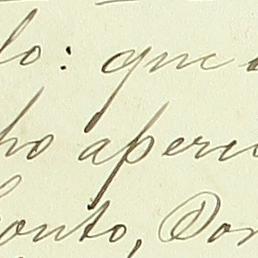 lo: que
ho aperci
Conto, Dom